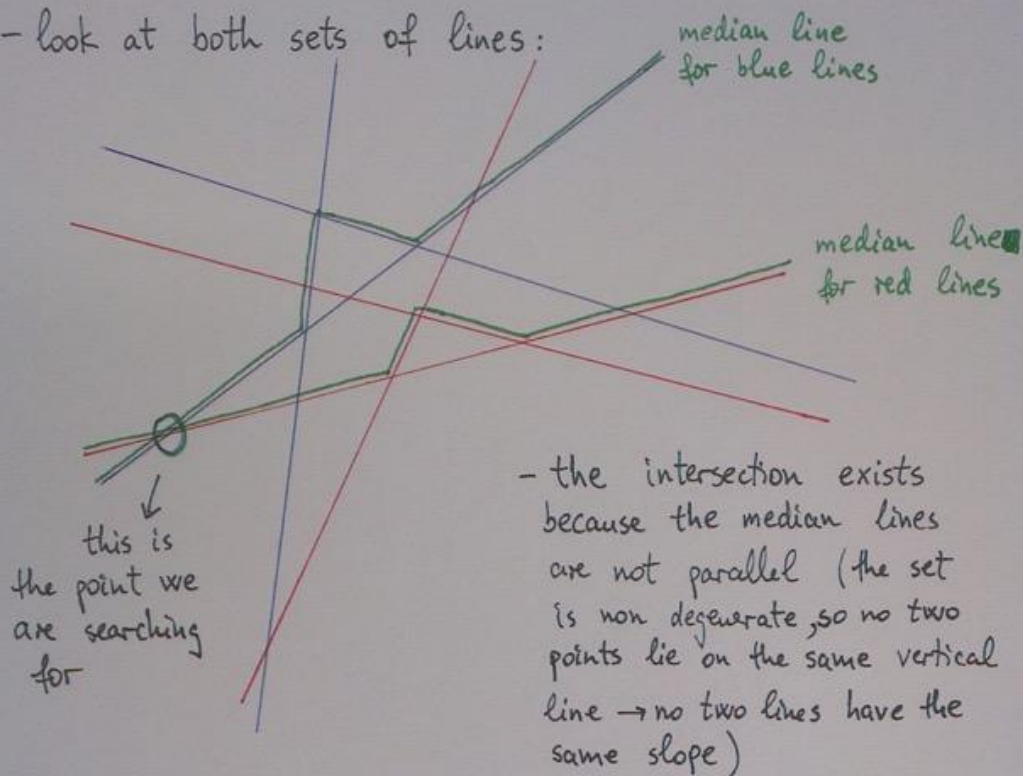 - look at both sets of lines:
median line
for blue lines
median line
for red lines
this is
the point we
are searching
for
- the intersection exists
because the median lines
are not parallel (the set
is non degenerate, so no two
points lie on the same vertical
line → no two lines have the
same slope)